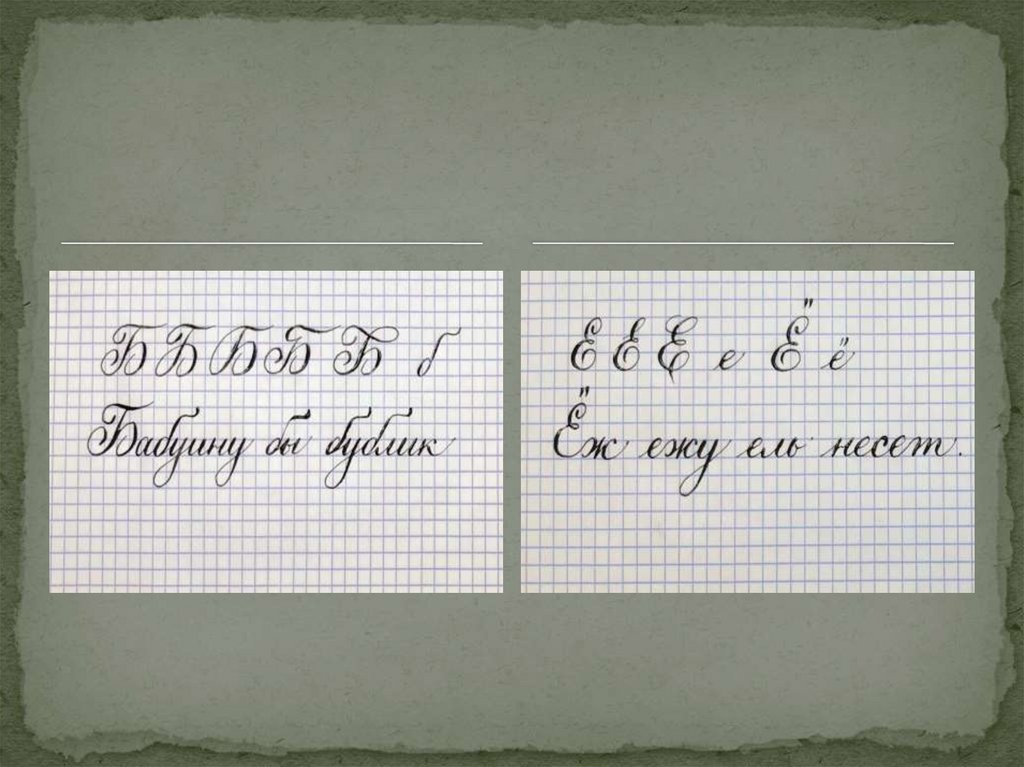 Б Б Б Б Б б
Бабуину бы бублик
Е Е Е е Ё ё
Ёж ежу ель несет.